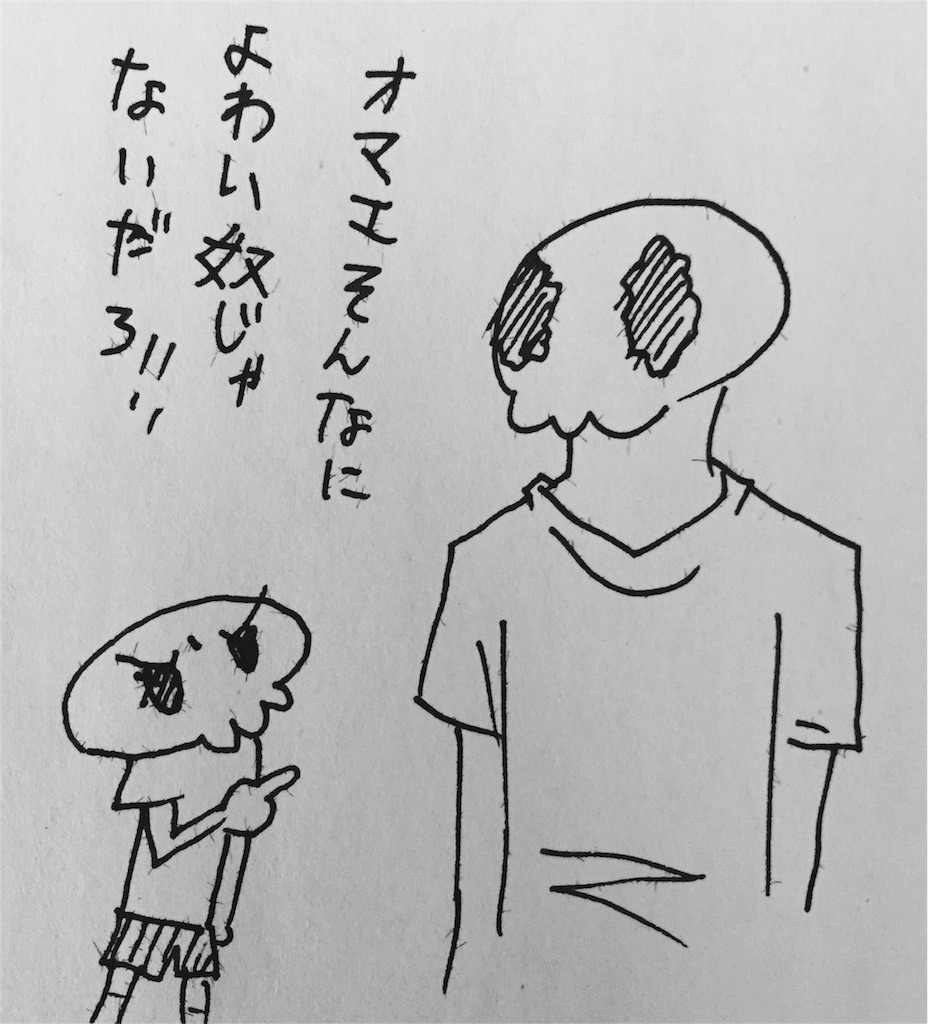 オマエそんなに
よわい奴じゃ
ないだろ!!